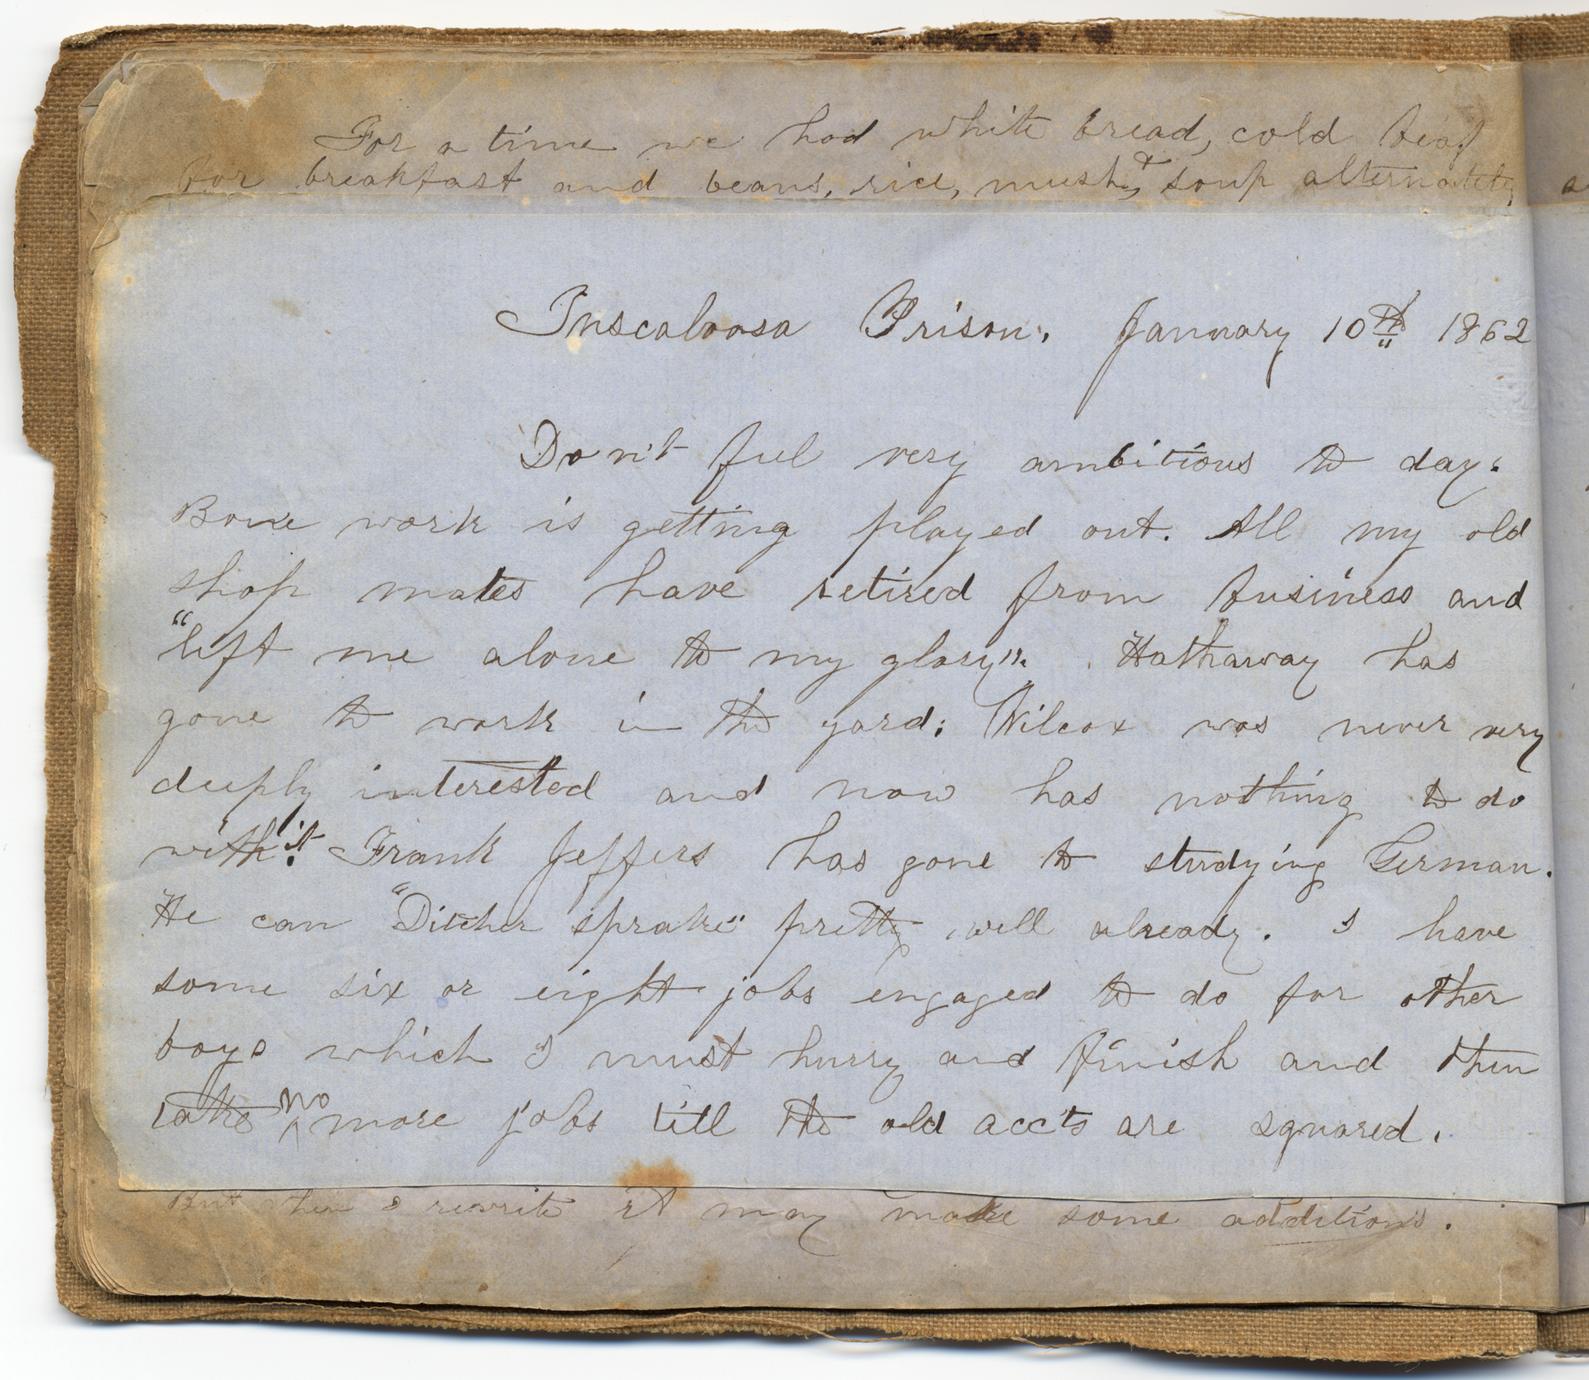 For a time we had white bread, cold beef
for breakfast and beans, rice, mush, & soup alternately,
Tuscaloosa Prison. January 10th 1862
Don't feel very ambitious to day.
Bone work is getting played out. All my old
shop mates have retired from business and
"left me alone to my glory". Hathaway has
gone to work in the yard; Wilcox was never very
deeply interested and now has nothing to do
with it. Frank Jeffers has gone to studying German.
He can "Ditcher sprake" pretty well already. I have
some six or eight jobs engaged to do for other
boys which I must hurry and finish and then
take no more jobs till the old acc'ts are squared.
But when I rewrite it may make some additions.